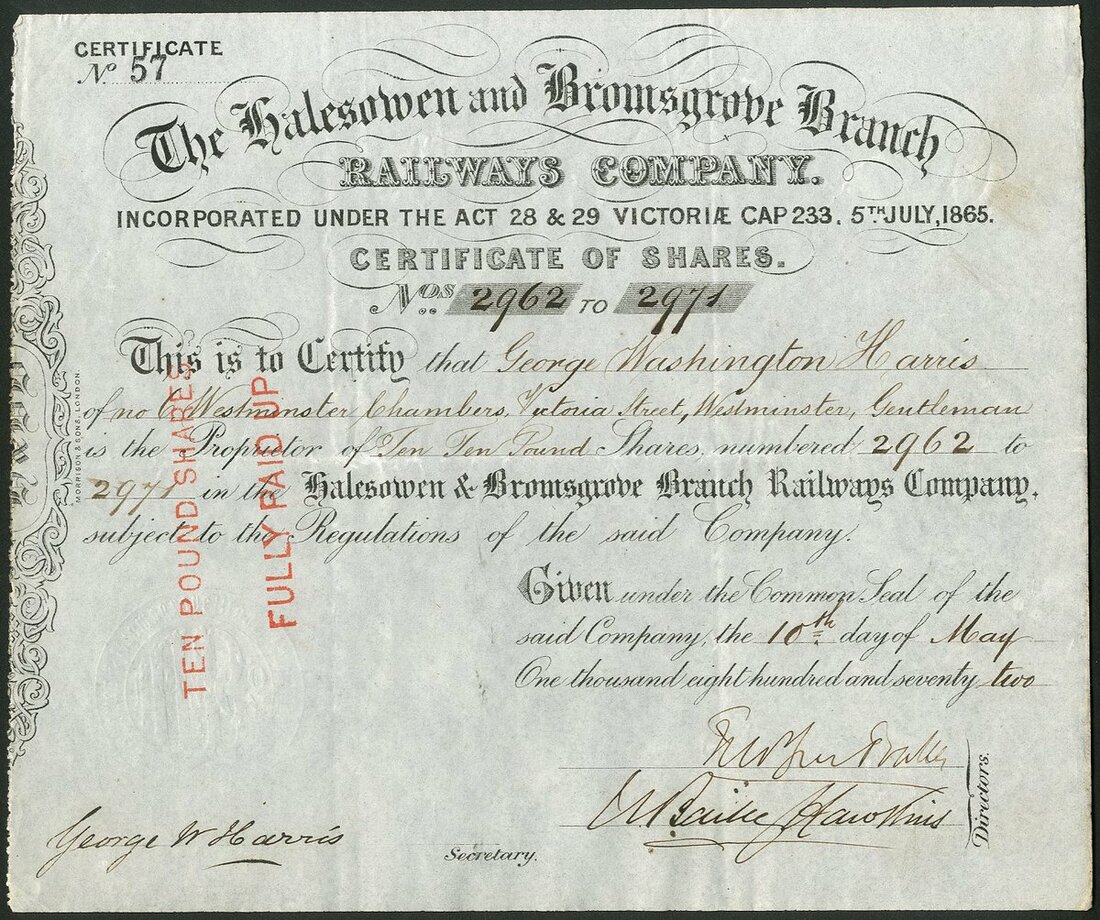 CERTIFICATE
No 57
The Halesowen and Bromsgrove Branch
RAILWAYS COMPANY.
INCORPORATED UNDER THE ACT 28 & 29 VICTORIÆ CAP 233. 5TH JULY, 1865.
CERTIFICATE OF SHARES.
Nos 2962 TO 2971
This is to Certify that George Washington Harris
of no 6 Westminster Chambers, Victoria Street, Westminster, Gentleman
is the Proprietor of Ten Ten Pound Shares, numbered 2962 to
2971 in the Halesowen & Bromsgrove Branch Railways Company,
subject to the Regulations of the said Company.
Given under the Common Seal of the
said Company, the 10th day of May
One thousand eight hundred and seventy two
TEN POUND SHARES
FULLY PAID UP
MORRISON & SONS. LONDON
Bailie Hawkins
Directors.
George W Harris
Secretary.